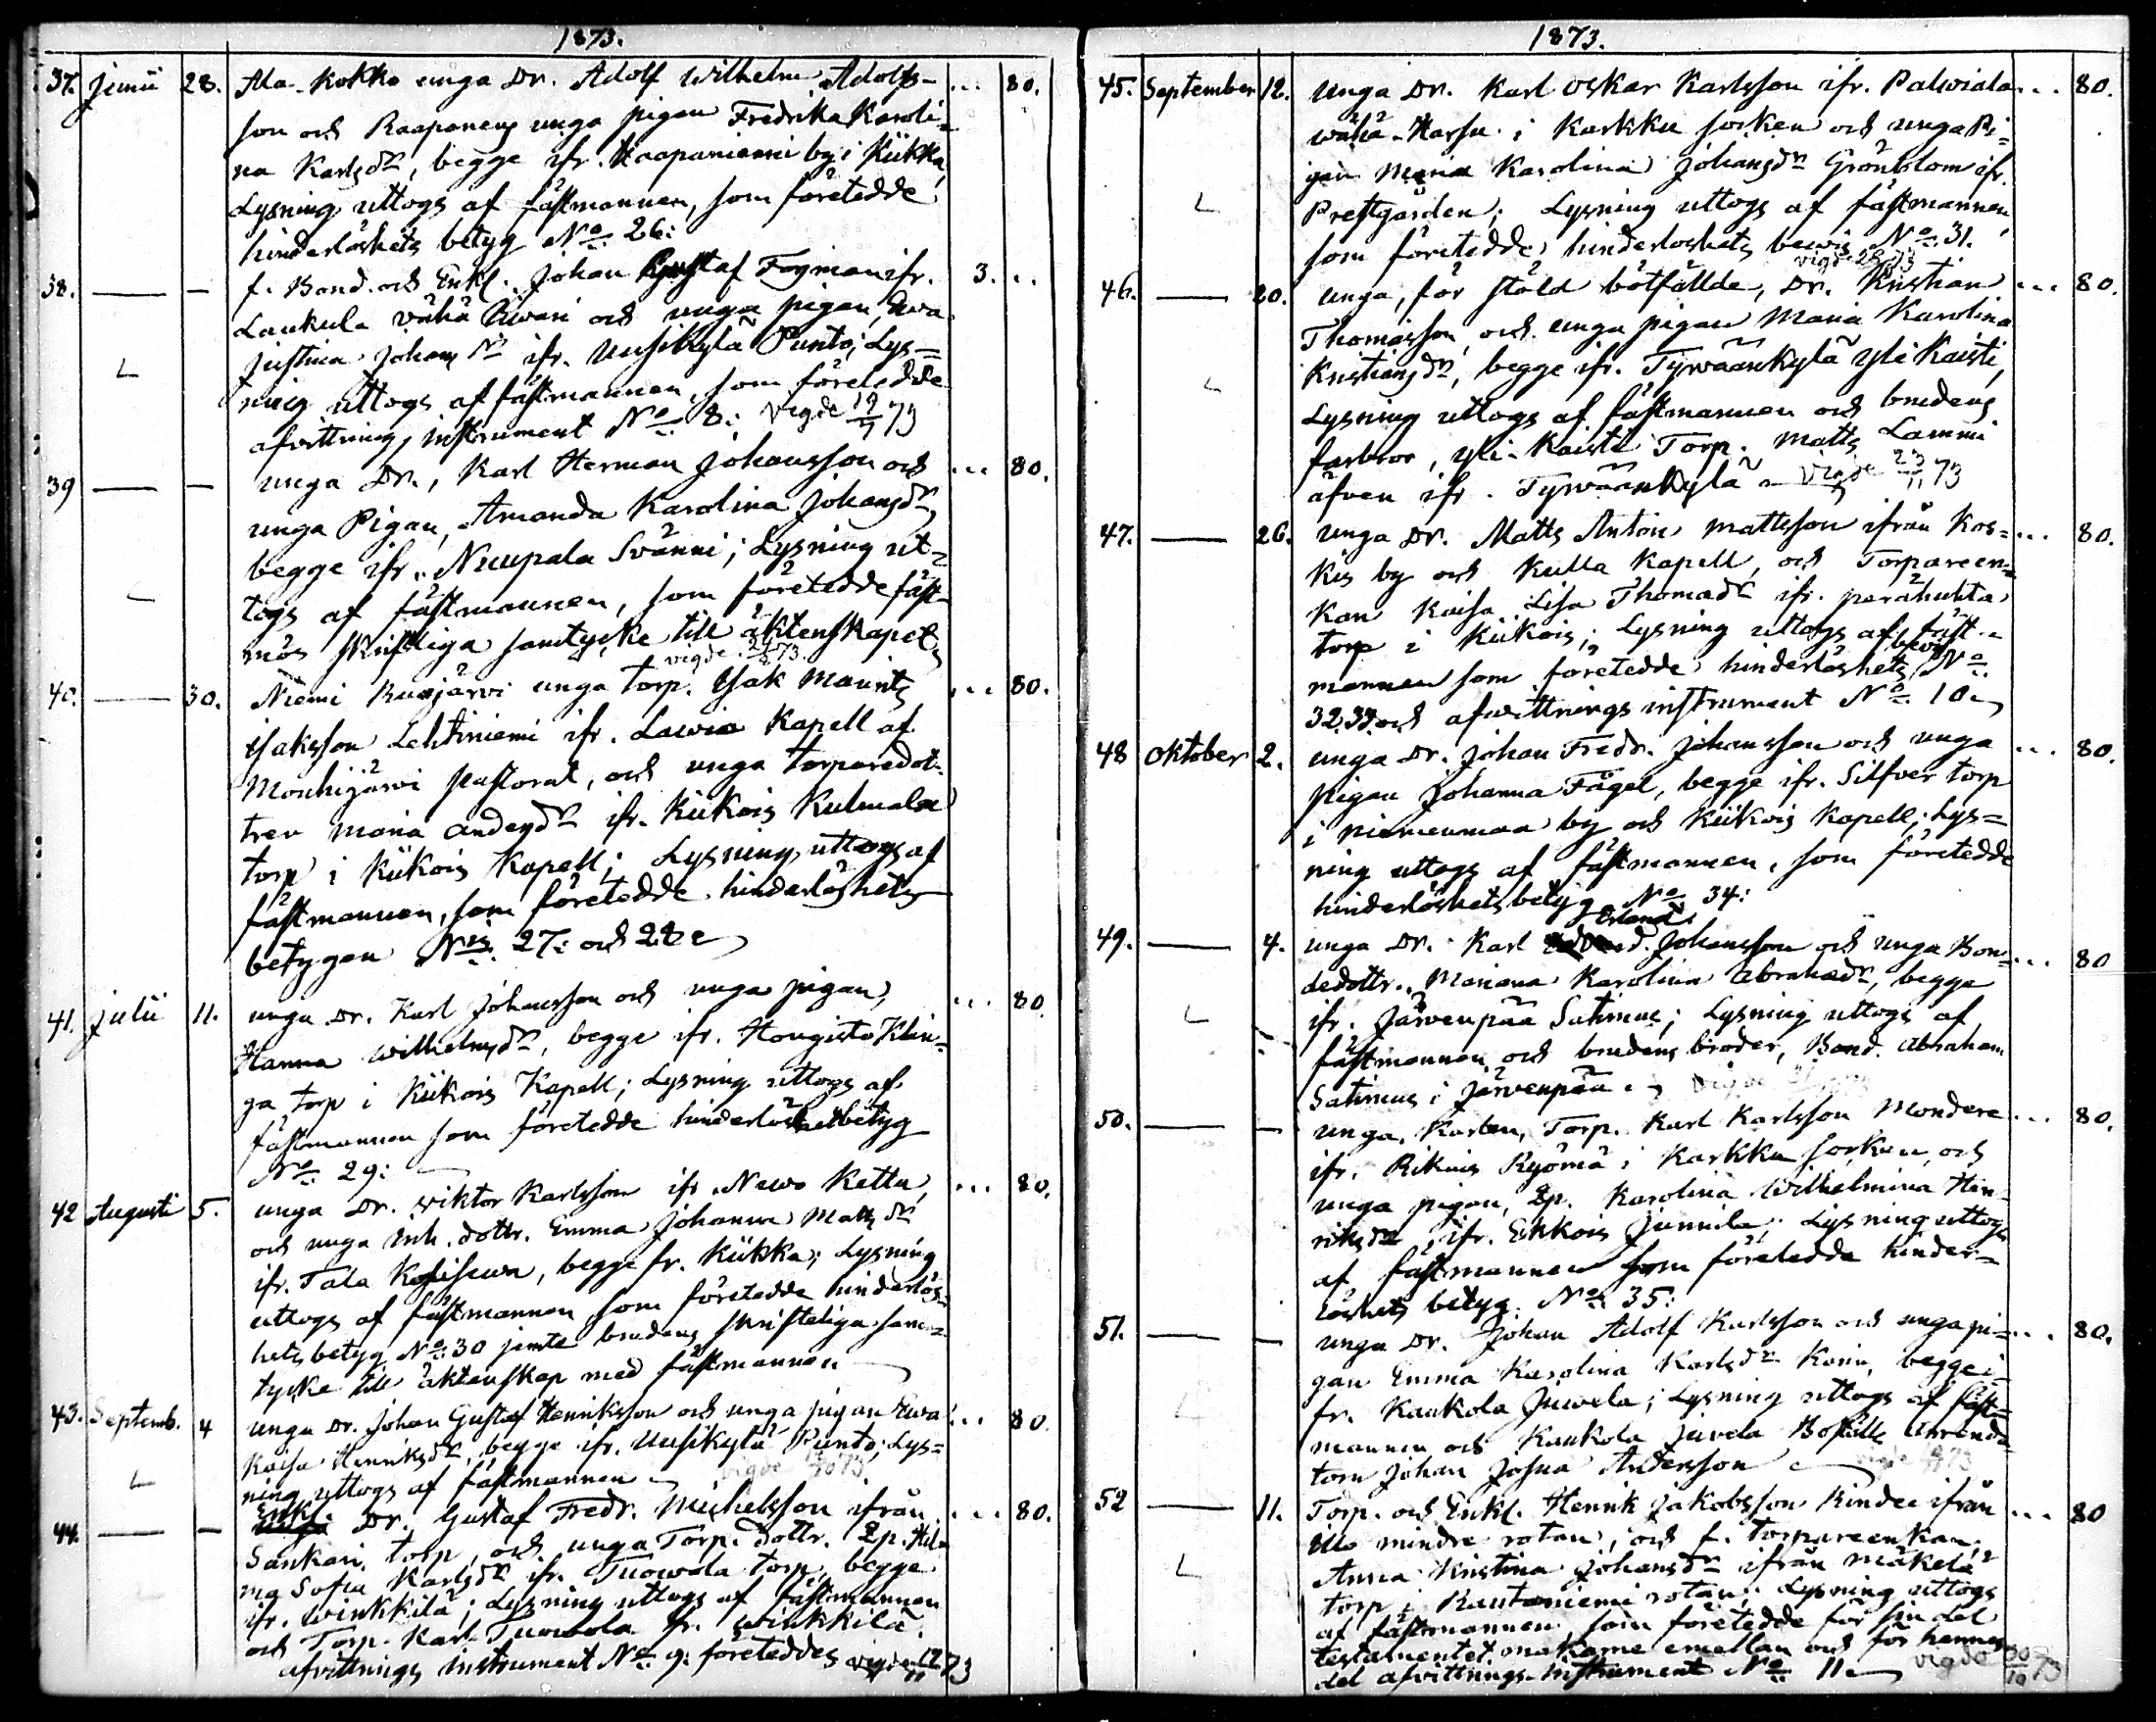 1873.
37. Junii 28. Ala-Kokko unga Dr. Adolf Wilhelm Adolfs- ... 80.
son och Raaponens unga pigan Fredrika Karoli=
na Karlsdr, begge ifr. Haapaniemi by i Kiikka,
Lysning uttogs af fästmannen, som företedde
hinderlöshets betyg No 26:
38. — — f. Bond. och Enkl. Johan Gustaf Foyman ifr. 3. ..
Laukula Vähä Uvari och unga pigan, Ewa
Justina Johansdr ifr. Uusikylä Punto; Lys=
ning uttogs af fästmannen, som företedde
afvittrings instrument No 8: vigde 12/7 73
39 — — unga Dr., Karl Herman Johansson och ... 80.
unga Pigan, Amanda Karolina Johansdr,
begge ifr. Nuupala Svänni; Lysning ut=
togs af fästmannen, som företedde fäst-
mös skriftliga samtycke till äktenskapet,
vigde 73.
40. — 30. Niemi Ruojärvi unga torp. Isak Maurits ... 80.
Isaksson Lehtiniemi ifr. Lawia Kapell af
Mouhijärvi pastorat, och unga torparedot-
tren Maria Andersdr ifr. Kiikois Kulmala
torp i Kiikois Kapell; Lysning uttogs af
fästmannen, som företedde hinderlöshets
betygen Nis 27: och 28:
41. Julii 11. unga Dr. Karl Johansson och unga pigan, ... 80
Hanna Wilhelmsdr, begge ifr. Hongisto Klin=
ga torp i Kiikois Kapell; Lysning uttogs af
fästmannen som företedde hinderlöshetbetyg
No 29:
42 Augusti 5. unga Dr. Viktor Karlsson ifr. Newo Kettu, ... 80.
och unga Inh. dottr. Emma Johanna Matts dr
ifr. Tala Kosisewa, begge fr. Kiikka; Lysning
uttogs af fästmannen som företedde hinderlös-
hets betyg No 30 jemte brudens skriftliga sam=
tycke till äktenskap med fästmannen
43. Septemb. 4 unga Dr. Johan Gustaf Henriksson och unga pigan Ewa ... 80.
Kaisa Henriksdr, begge ifr. Uusikylä Punto; Lys=
ning uttogs af fästmannen vigde 73
44. — — Enkl. Dr. Gustaf Fredr. Michelsson ifrån ... 80.
Sankari torp, och unga Torp. dottr. Ip. Hil-
ma Sofia Karlsdr ifr. Tuowola torp, begge
ifr. Winkkilä; Lysning uttogs af fästmannen
och Torp. Karl Tuowola fr. Winkkilä.
afvittrings instrument No 9: företeddes vigde 12/11 73
1873.
45. September 12. unga Dr. Karl Oskar Karlsson ifr. Palviala ... 80.
wähä-Harsu i Karkku socken och unga Pi=
gan Maria Karolina Johansdr Grönblom ifr.
Prestgården; Lysning uttogs af fästmannen,
som företedde hinderlöshets bewis No 31.
vigde 73
46. — 20. unga, för stöld bötfällde, Dr. Kristian ... 80.
Thomasson, och unga pigan Maria Karolina
Kristiansdr, begge ifr. Tyrwäänkylä Yli Kaisti,
Lysning uttogs af fästmannen och brudens
farbror, Yli-Kaisti Torp. Matts Lammi
äfven ifr. Tyrwäänkylä vigde 23/11 73
47. — 26. unga Dr. Matts Anton Mattsson ifrån Kos= ... 80.
kis by och Kulla Kapell, och Torpareen=
kan Kaisa Lisa Thomasdr ifr. perähuhta
torp i Kiikois; Lysning uttogs af fäst-
mannen som företedde hinderlöshets bevis No
32.33. och afvittrings instrument No 10
48 Oktober 2. unga Dr. Johan Fredr. Johansson och unga ... 80.
pigan Johanna Fågel, begge ifr. Silfver torp
i niemenmaa by och Kiikois Kapell; Lys=
ning uttogs af fästmannen, som företedde
hinderlöshets betyg No 34:
49. — 4. unga Dr. Karl Erland Johansson och unga Bon= ... 80
dedottr. Mariana Karolina Abrahadr, begge
ifr. Järvenpää Satimus; Lysning uttogs af
fästmannen och brudens broder, Bond. Abraham
Satimus i Järvenpää. vigde
50. — — unga Karlen, Torp. Karl Karlsson Mondere ... 80.
ifr. Rikois Ryömä i Karkku socken, och
unga pigan, Ip. Karolina Wilhelmina Hen-
riksdr, ifr. Ekkois Junnila; Lysning uttogs
af fästmannen som företedde hinder=
löshets betyg No 35:
51. — — unga Dr. Johan Adolf Karlsson och unga pi= ... 80.
gan Emma Karolina Karlsdr Koni, begge i-
fr. Kaukola Juvela; Lysning uttogs af fäst=
mannen och Kaukola Juvela Boställs Arrenda=
torn Johan Josua Andersson vigde 73
52 — 11. Torp. och Enkl. Henrik Jakobsson Rindee ifrån ... 80
Illo mindre rotan, och f. torpareenkan,
Anna Kristina Johansdr ifrån Mäkelä
torp i Rautaniemi rotan; Lysning uttogs
af fästmannen, som företedde för sin del
testamentet makarne emellan och för hennes
del afvittrings-instrument No 11 vigde 30/10 73